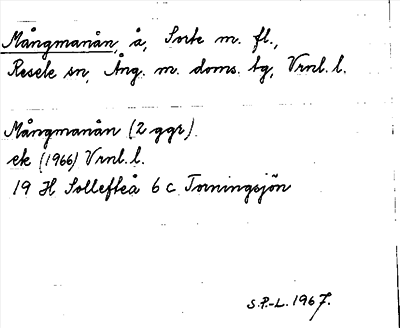 Mångmanån, å, Sorte m. fl.,
Resele sn, Ång. m. doms. tg, Vrnl. l.
Mångmanån (2 ggr)
ek (1966) Vrnl. l.
19 H Sollefteå 6 c Torningsjön
S.P.-L. 1967.